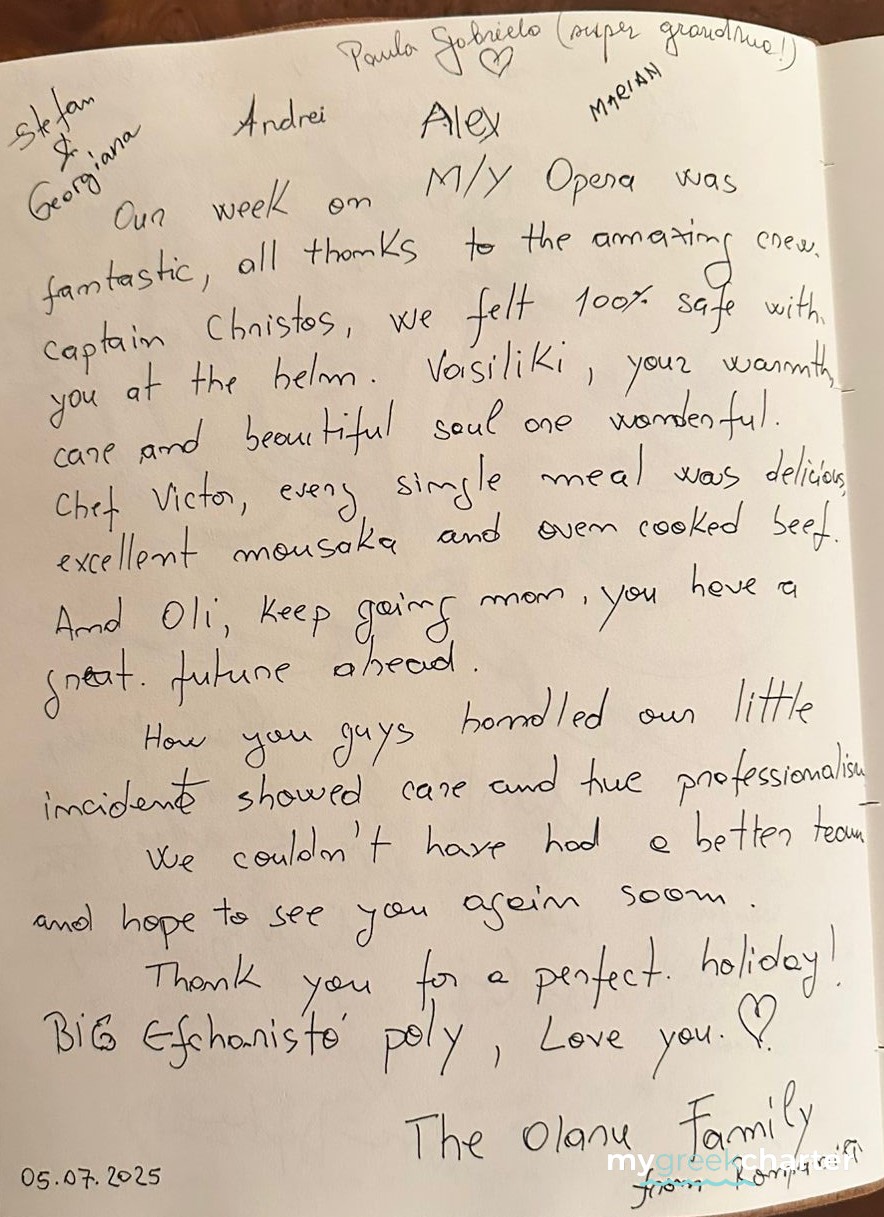 Paula Gabriela (super grandma!)
♡
Stefan
&
Georgiana
Andrei
Alex
MARIAN
Our week on M/Y Opera was
fantastic, all thanks to the amazing crew.
Captain Christos, we felt 100% safe with
you at the helm. Vasiliki, your warmth,
care and beautiful soul are wonderful.
Chef Victor, every single meal was delicious,
excellent mousaka and oven cooked beef.
And Oli, keep going man, you have a
great. future ahead.
How you guys handled our little
incident showed care and true professionalism
We couldn't have had a better team
and hope to see you again soon.
Thank you for a perfect. holiday!
BIG Efcharistó poly, Love you. ♡
The Olanu Family
from
05.07.2025
mygreekcharter